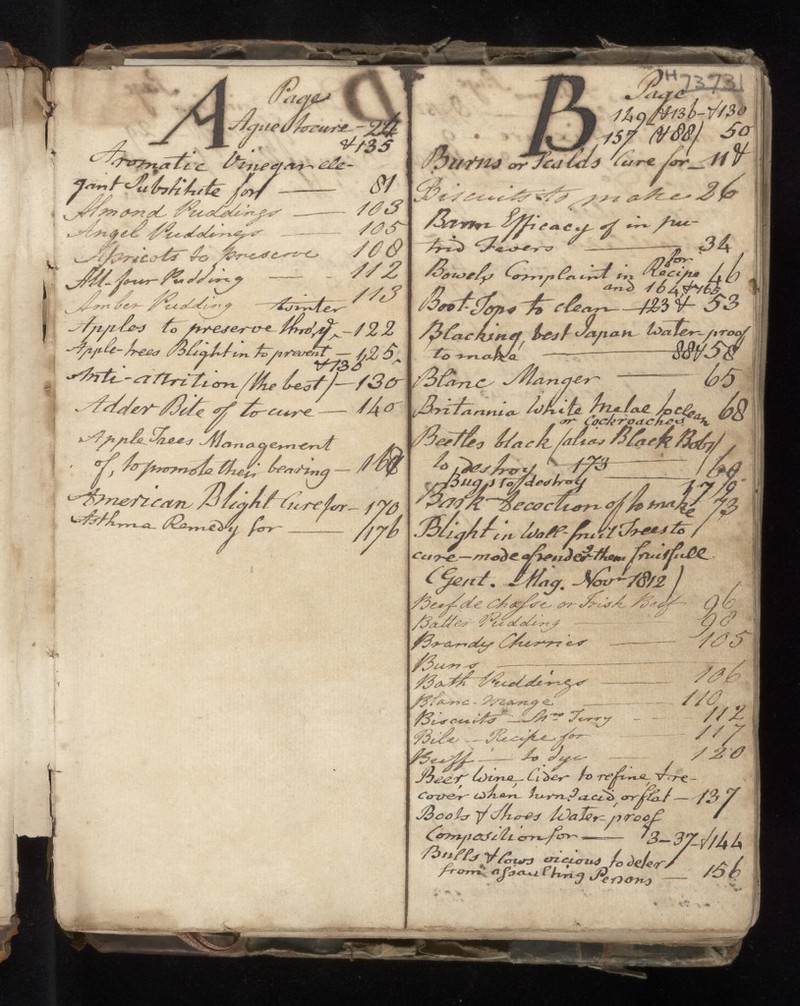 A
Page
Ague to cure - 24
& 135
Aromatic Vinegar ele-
gant Substitute for — 81
Almond Puddings — 103
Angel Puddings — 105
Apricots to preserve 108
All-four Pudding — 112
Amber Pudding 113
winter
Apples to preserve thro' ye - 122
Apple-trees Blight in to prevent - 125
& 135
Anti-attrition (the best) - 130
Adder Bite of to cure — 140
Apple Trees Management
of, to promote their bearing -
American Blight Cure for - 170
Asthma Remedy for — 176
B
H 73731
Page
149 & 136 - & 130
157 (& 88) 50
Burns or Scalds Cure for - 11 &
Biscuits to make 26
Barm Efficacy of in pu-
trid Fevers — 34
for
Bowels Complaint in Recipe 46
and 164 & 165
Boot-Tops to clean - 123 & 53
Blacking, best Japan Water-proof
to make — 88 & 58
Blanc Manger — 65
Britannia White Metal to clean 68
or Cockroaches
Beetles black (alias Black Bobs)
to destroy 173 — 68
Bugs to destroy
Bark Decoction of to make 73
Blight in Wall-fruit Trees to
cure - mode of rendg. them fruitfull
(Gent. Mag. Novr 1812)
Beef de Chasse or Irish Beef 96
Batter Pudding — 98
Brandy Cherries — 105
Buns —
Bath Puddings — 106
Blanc-mange — 110
Biscuits — Mrs Terry - - 112
Bile — Recipe for — 117
Buff — to dye — 120
Beer Wine Cider to refine & re-
cover when turn'd acid, or flat - 137
Boots & Shoes Water-proof
Composition for — 3-37-&144
Bulls & Cows vicious to deter
from assaulting Persons — 156